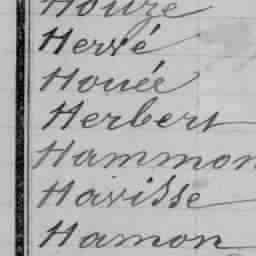 Houze
Hervé
Houée
Herbert
Hammon
Havisse
Hamon